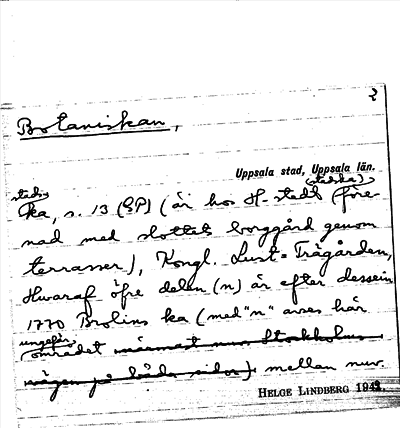 2
Botaniskan,
Uppsala stad, Uppsala län.
stads
ka, s. 13 (GP) (är hos H-stedt (stadska) före-
nad med slottets borggård genom
terrasser), Kongl. Lust-Trägården,
Hwaraf öfre delen (n) är efter dessein
1770 Brolins ka (med "n" avses här
ungefär
området närmast nuv Stockholms-
vägen på båda sidor) mellan nuv.
HELGE LINDBERG 1943.